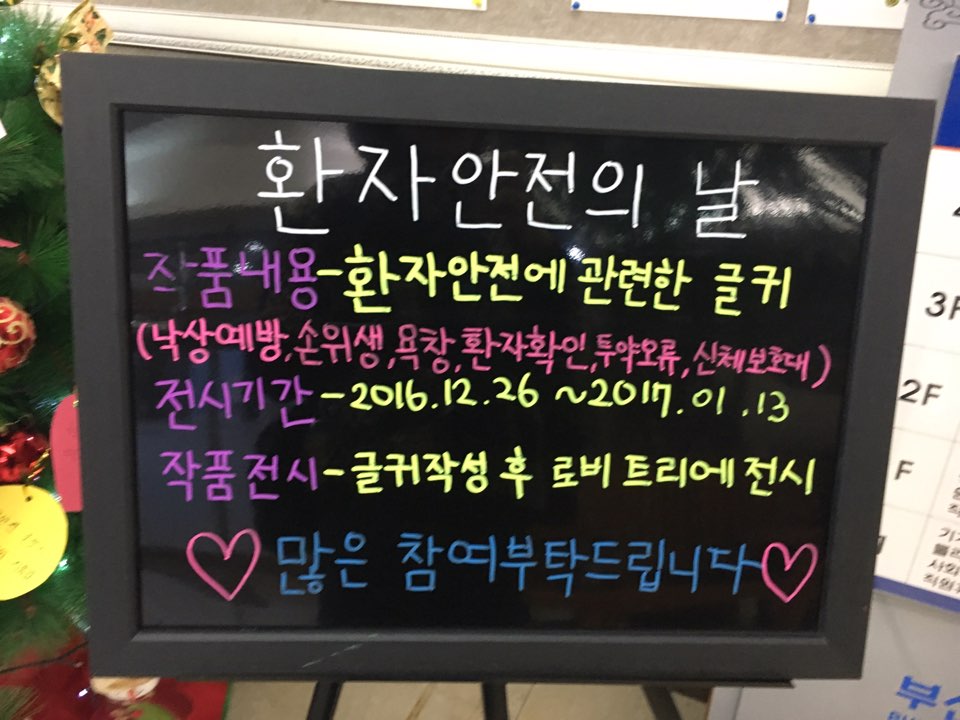 환자안전의 날
작품내용-환자안전에 관련한 글귀
(낙상예방,손위생,욕창,환자확인,투약오류,신체보호대)
전시기간-2016.12.26 ~2017.01.13
작품전시-글귀작성 후 로비 트리에 전시
♡많은 참여부탁드립니다♡
2F